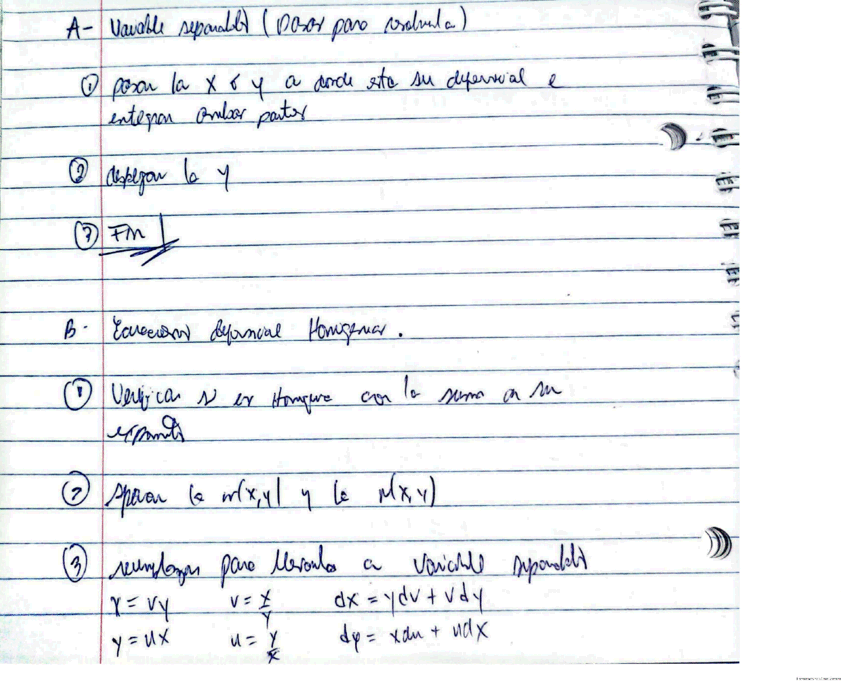 A- Variable separable (Pasos para resolverla)
① pasar la x ó y a donde esta su diferencial e
integrar ambas partes
② despejar la y
③ Fin
B- Ecuaciones diferencial Homogenea.
① Verificar si es Homogenea con la suma a su
exponente
② Separar la m(x,y) y la N(x,y)
③ reemplazar para llevarlas a variable separable
x = vy v = x/y dx = ydv + vdy
y = ux u = y/x dy = xdu + udx